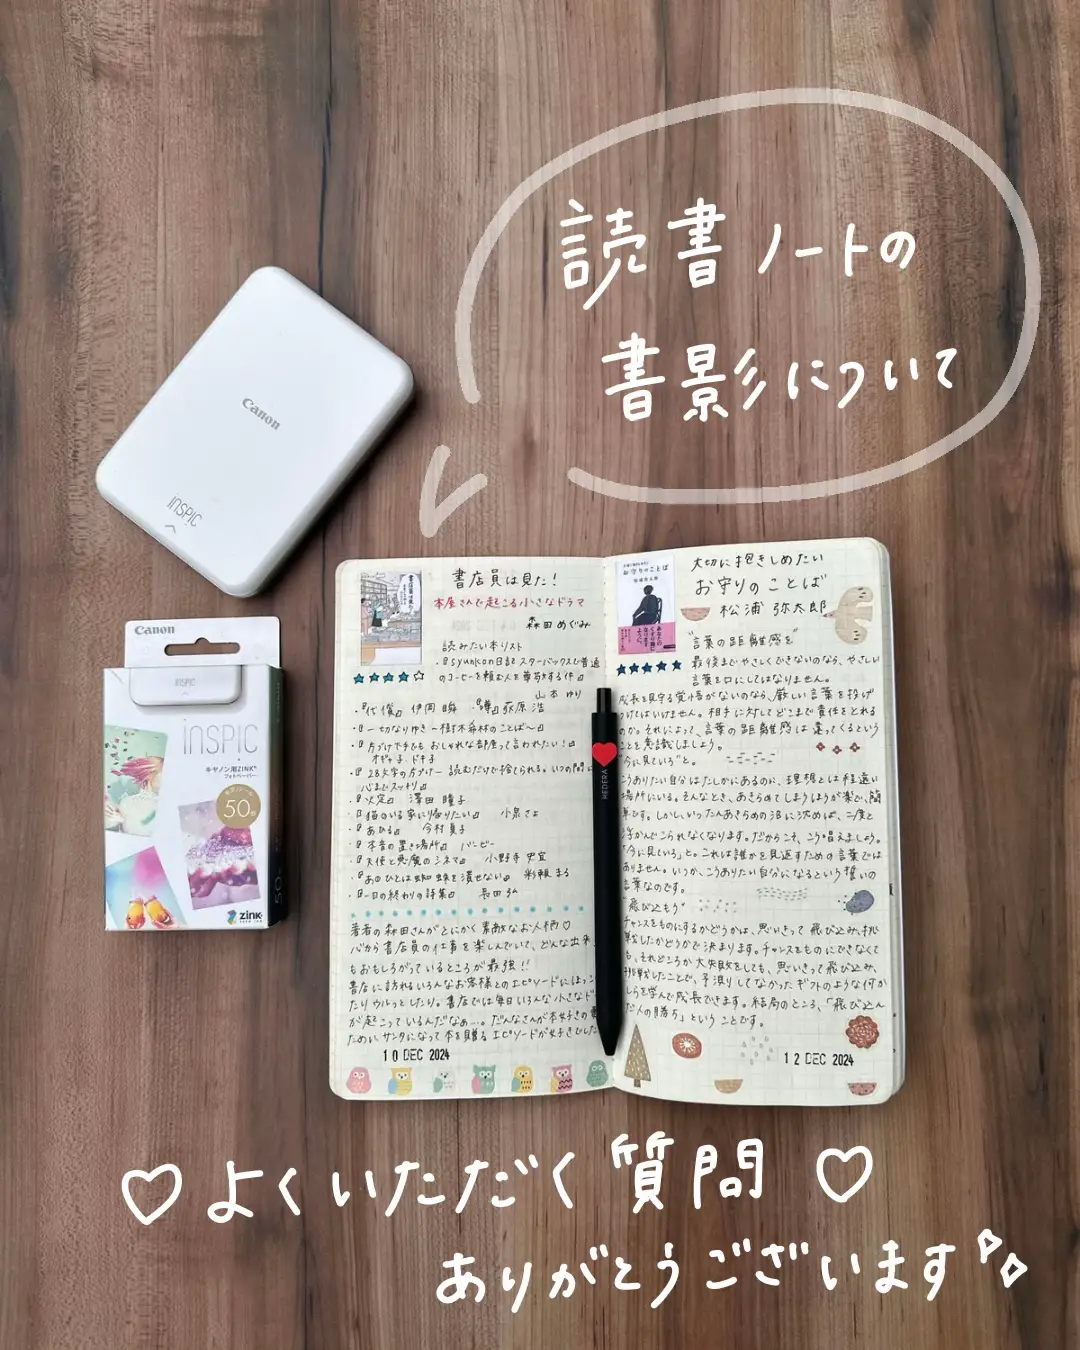 読書ノートの
書影について
Canon
inspic
Canon
inspic
inspic
キヤノン用ZINK
フォトペーパー
50
zink
書店員は見た!
本屋さんで起こる小さなドラマ
森田めぐみ
読みたい本リスト
・『syunkon日記 スターバックスで普通
のコーヒーを頼む人を尊敬する件』
山本ゆり
・『代償』伊岡瞬 ・『噂』荻原浩
・『一切なりゆき〜樹木希林のことば〜』
・『片づけ下手でも おしゃれな部屋って言われたい!』
・『28文字の片づけ 読むだけで捨てられる。いつの間に
心までスッキリ』
・『火定』 澤田瞳子
・『猫のいる家に帰りたい』 小泉さよ
・『あひる』 今村夏子
・『本音の置き場所』 バービー
・『天使と悪魔のシネマ』 小野寺史宜
・『あのひとは蜘蛛を潰せない』 彩瀬まる
・『一日の終わりの詩集』 長田弘
著者の森田さんがとにかく素敵なお人柄♡
心から書店員の仕事を楽しんでいて、どんな出来
もおもしろがっているところが最強!!
書店に訪れるいろんなお客様とのエピソードにほっこ
たりウルッとしたり。書店では毎日いろんな小さなド
が起こっているんだなぁ…。だんなさんが本好きの
ためにサンタになって本を贈るエピソードが好きでした
10 DEC 2024
お守りのことば
大切に抱きしめたい
お守りのことば
松浦弥太郎
"言葉の距離感を"
最後までやさしくできないのなら、やさしい
言葉を口にしてはなりません。
成長を見守る覚悟がないのなら、厳しい言葉を投げ
つけてはいけません。相手に対してどこまで責任をとれる
のか。それによって、言葉の距離感は違ってくるという
ことを意識しましょう。
"今に見ている"と。
こうありたい自分はたしかにあるのに、理想とは程遠い
場所にいる。そんなとき、あきらめてしまうほうが楽で、簡
単です。しかし、いったんあきらめの沼に沈めば、二度と
浮かんでこられなくなります。だからこそ、こう唱えましょう。
「今に見ている」と。これは誰かを見返すための言葉では
ありません。いつか、こうありたい自分になるという誓いの
言葉なのです。
"飛び込もう"
チャンスをものにするかどうかは、思いきって飛び込み、挑
戦したかどうかで決まります。チャンスをものにできなくて
も、それどころか大失敗をしても、思いきって飛び込み、
挑戦したことで、予測りしてなかったギフトのような何か
しらを学んで成長できます。結局のところ、「飛び込ん
だ人の勝ち」ということです。
12 DEC 2024
HEDERA
♡よくいただく質問♡
ありがとうございます